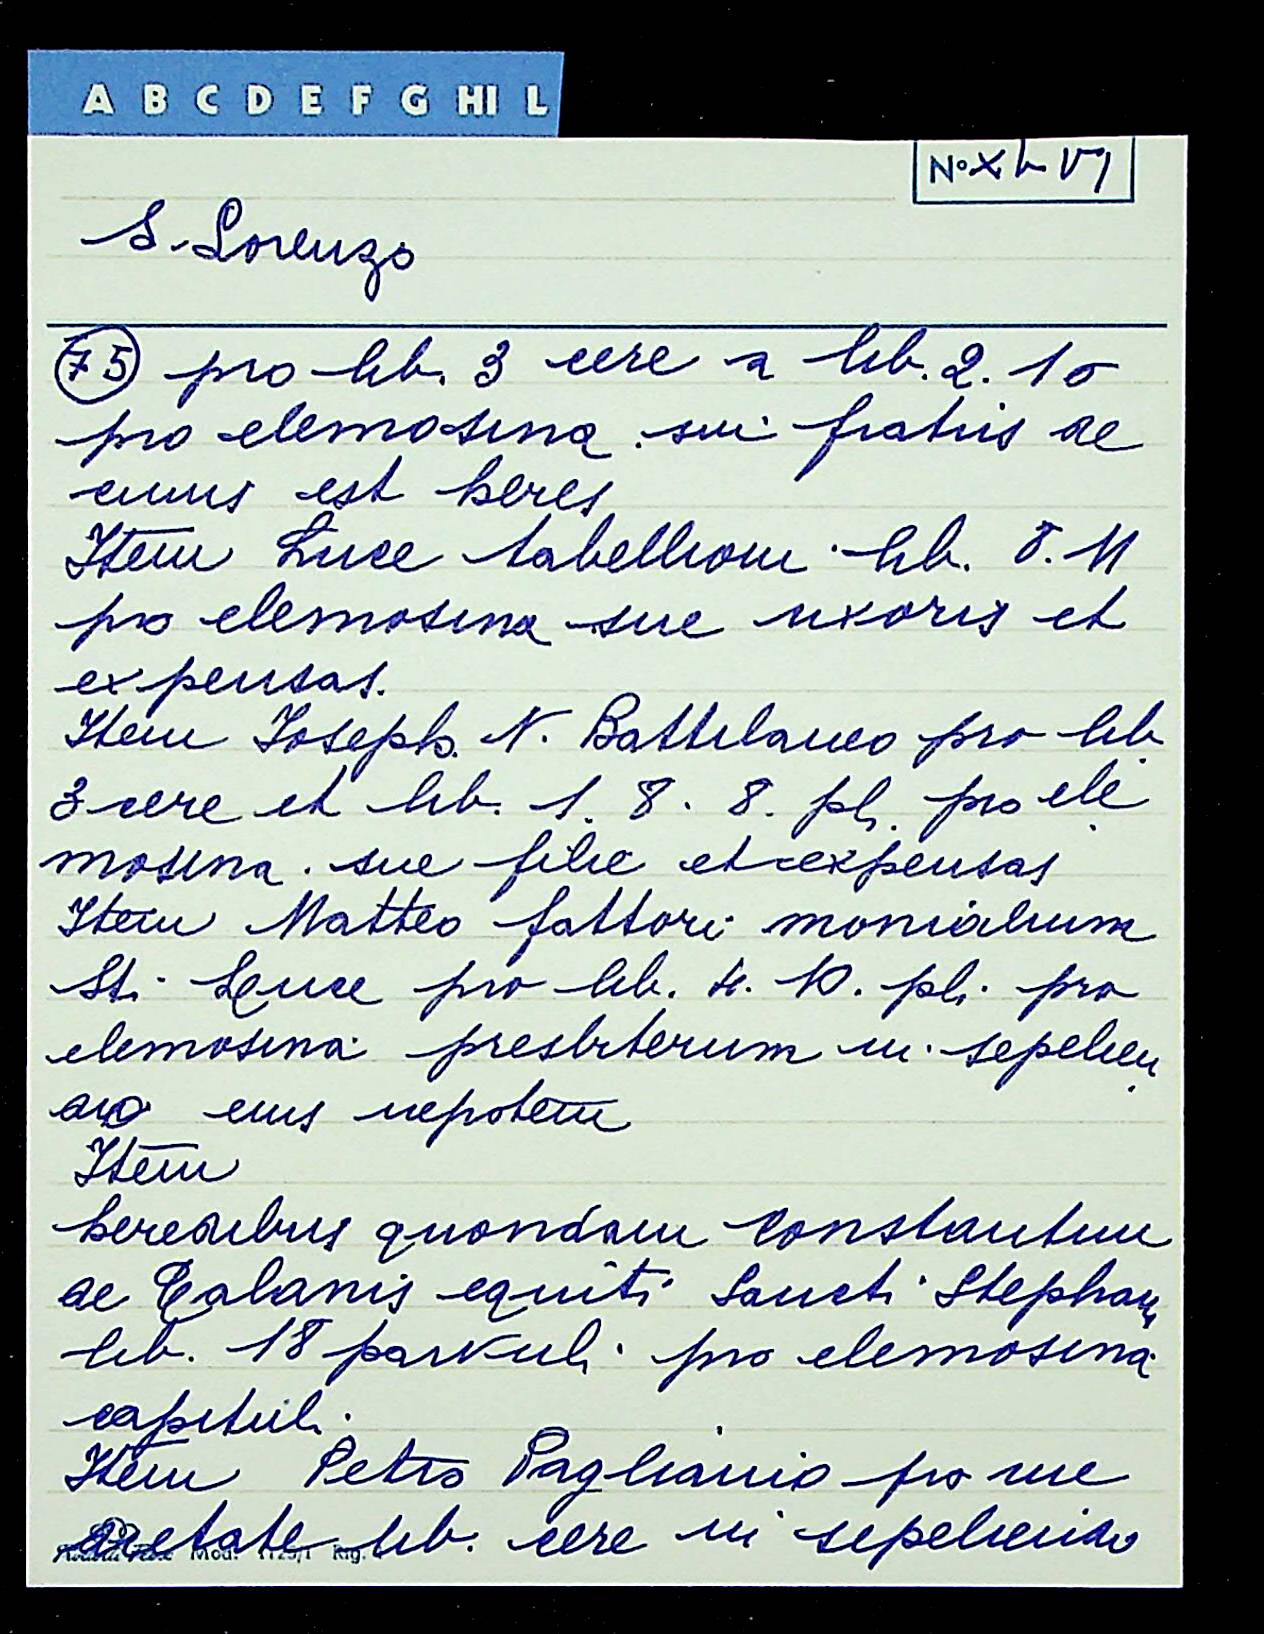 A B C D E F G HI L
N° XLVI
S. Lorenzo
75 pro lib. 3 cere a lib. 2. 10
pro elemosina sui fratris de
cuius est heres
Item Luce tabellioni lib. 8. 11
pro elemosina sue uxoris et
expensas.
Item Joseph. N. Battilaneo pro lib.
3 cere et lib. 1. 8. 8. pli. pro ele
mosina sue filie et expensas
Item Matteo fattori monialium
Sti. Luce pro lib. 4. 10. pli. pro
elemosina presbiterum in sepelien
do eius nepotem
Item
heredibus quondam Constantini
de Calanis equiti Sancti Stephani
lib. 18 parvuli pro elemosina
capituli.
Item Petro Paglianio pro me
dietate lib. cere in sepeliendo
Mod. Rig.